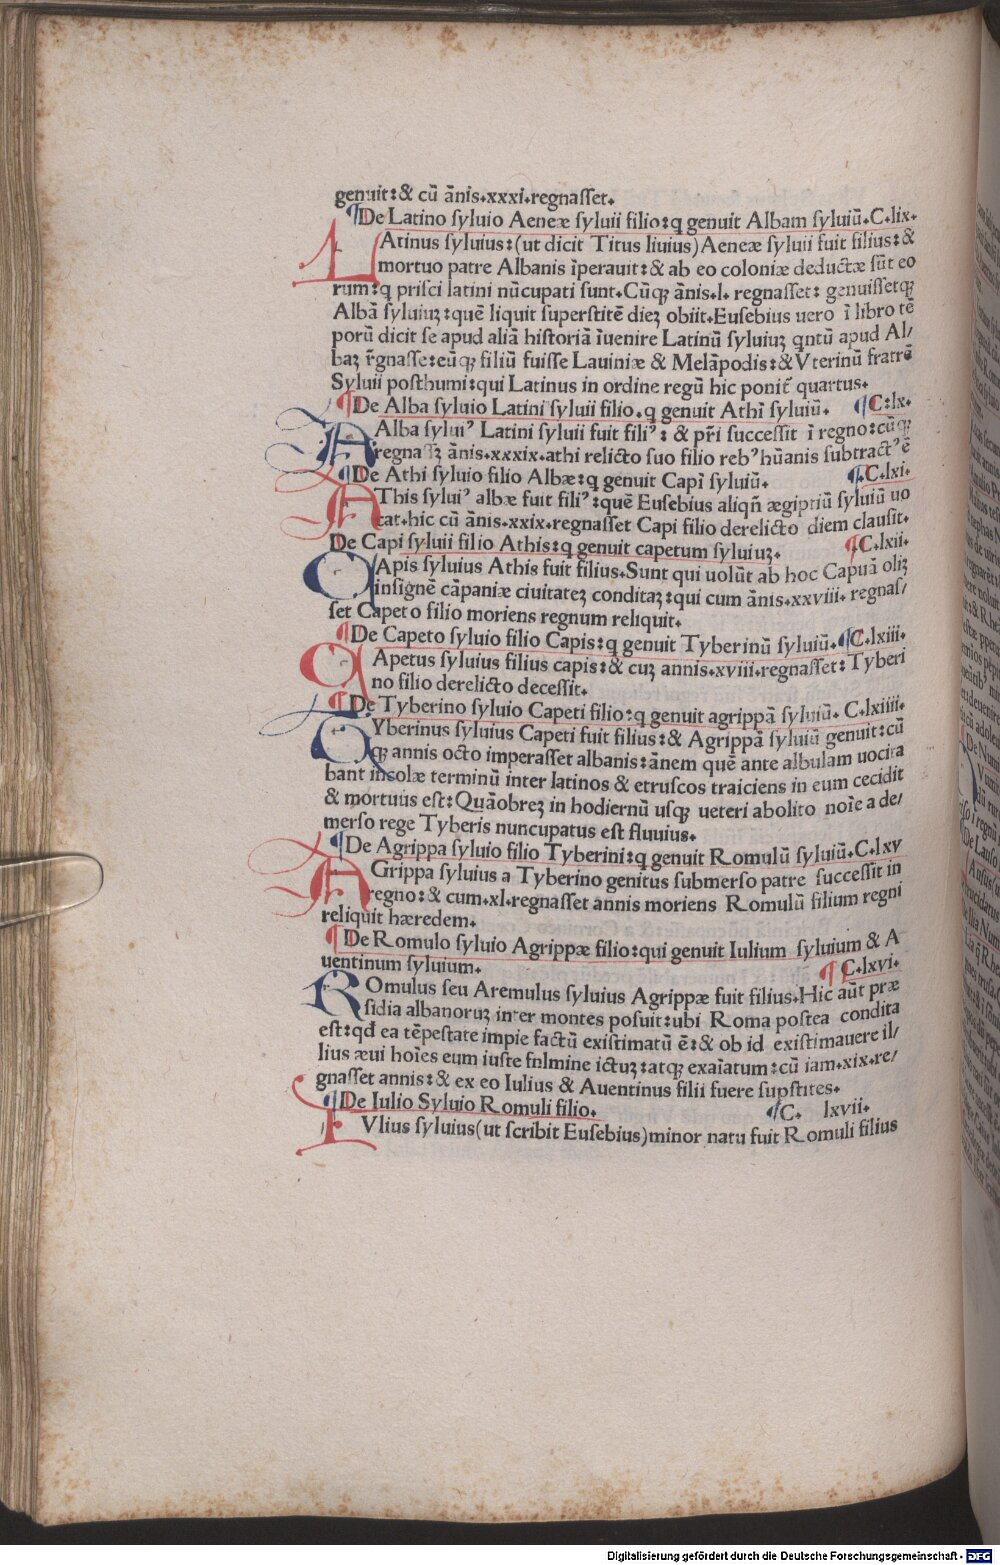 genuit: & cū ānis.xxxi.regnaſſet.
¶De Latino ſyluio Aeneæ ſyluii filio:q genuit Albam ſyluiū.C.lix.
LAtinus ſyluius:(ut dicit Titus liuius)Aeneæ ſyluii fuit filius:&
mortuo patre Albanis īperauit:& ab eo coloniæ deductæ ſūt eo
rum:q priſci latini nūcupati ſunt.Cūqꝫ ānis.l. regnaſſet: genuiſſetqꝫ
Albā ſyluiuꝫ:quē liquit ſuperſtitē dieꝫ obiit.Euſebius uero ī libro tē
porū dicit ſe apud aliā hiſtoriā īuenire Latinū ſyluiuꝫ qntū apud Al/
baꝫ r̄gnaſſe:eūqꝫ filiū fuiſſe Lauiniæ & Melāpodis:& Vterinū fratrē
Syluii poſthumi:qui Latinus in ordine regū hic ponit̄ quartus.
¶De Alba ſyluio Latini ſyluii filio.q genuit Athī ſyluiū. ¶C:lx.
AAlba ſyluiꝰ Latini ſyluii fuit filiꝰ: & pr̄i ſucceſſit ī regno:cūqꝫ
regnaſſꝫ ānis.xxxix.athi relicto ſuo filio rebꝰ hūanis ſubtractꝰ ē
¶De Athi ſyluio filio Albæ:q genuit Capī ſyluiū. ¶C.lxi.
AThis ſyluiꝰ albæ fuit filiꝰ:quē Euſebius aliqn̄ ægiptiū ſyluiū uo
cat.hic cū ānis.xxix.regnaſſet Capi filio derelicto diem clauſit.
De Capi ſyluii filio Athis:q genuit capetum ſyluiuꝫ. ¶C.lxii.
CApis ſyluius Athis fuit filius.Sunt qui uolūt ab hoc Capuā oliꝫ
inſignē cāpaniæ ciuitateꝫ conditaꝫ:qui cum ānis.xxviii. regnaſ/
ſet Capeto filio moriens regnum reliquit.
¶De Capeto ſyluio filio Capis:q genuit Tyberinū ſyluiū.¶C.lxiii.
CApetus ſyluius filius capis:& cuꝫ annis.xviii.regnaſſet:Tyberi
no filio derelicto deceſſit.
¶De Tyberino ſyluio Capeti filio:q genuit agrippā ſyluiū. C.lxiiii.
TYberinus ſyluius Capeti fuit filius:& Agrippā ſyluiū genuit:cū
qꝫ annis octo imperaſſet albanis:ānem quē ante albulam uocita
bant incolæ terminū inter latinos & etruſcos traiciens in eum cecidit
& mortuus eſt:Quāobreꝫ in hodiernū uſqꝫ ueteri abolito noīe a de/
merſo rege Tyberis nuncupatus eſt fluuius.
¶De Agrippa ſyluio filio Tyberini:q genuit Romulū ſyluiū.C.lxv
AGrippa ſyluius a Tyberino genitus ſubmerſo patre ſucceſſit in
regno:& cum.xl.regnaſſet annis moriens Romulū filium regni
reliquit hæredem.
¶De Romulo ſyluio Agrippæ filio:qui genuit Iulium ſyluium & A
uentinum ſyluium. ¶C.lxvi.
ROmulus ſeu Aremulus ſyluius Agrippæ fuit filius.Hic aūt præ
ſidia albanoruꝫ inter montes poſuit:ubi Roma poſtea condita
eſt:qd̄ ea tēpeſtate impie factū exiſtimatū ē:& ob id exiſtimauere il/
lius æui hoīes eum iuſte fnlmine ictuꝫ:atqꝫ exaīatum:cū iam.xix.re/
gnaſſet annis:& ex eo Iulius & Auentinus filii fuere ſupſtites.
¶De Iulio Syluio Romuli filio. ¶C. lxvii.
IVlius ſyluius(ut ſcribit Euſebius)minor natu fuit Romuli filius
Digitalisierung gefördert durch die Deutsche Forschungsgemeinschaft - DFG